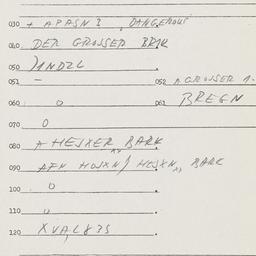 030 + APASN? DANGEROUS
040 DER GROSSER BRAK
050 JANDZL
051 —
052 A GROSSER A.
060 0
061 BREGN
070 0
080 A HEJXER BARK
090 AFN HOJXN / HOJXN BARG
100 0
110 0
120 XVAL835